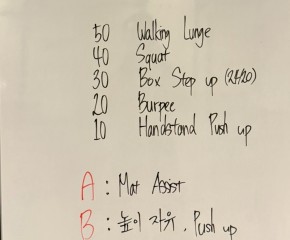 50 Walking Lunge
40 Squat
30 Box Step up (24/20)
20 Burpee
10 Handstand Push up
A : Mat Assist
B : 높이 자유, Push up